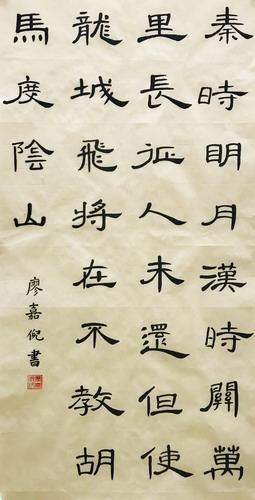 秦時明月漢時關萬
里長征人未還但使
龍城飛將在不教胡
馬度陰山
廖嘉倪書